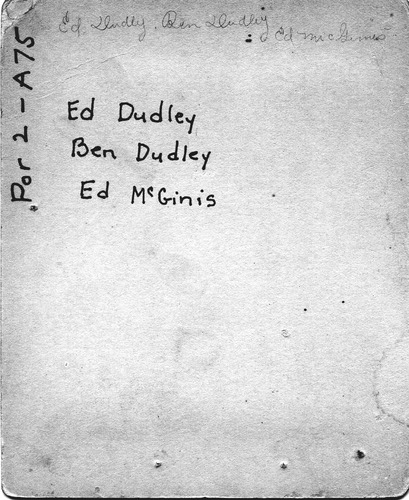 Ed Dudley, Ben Dudley, Ed McGinnis
Por 2 - A75
Ed Dudley
Ben Dudley
Ed McGinis